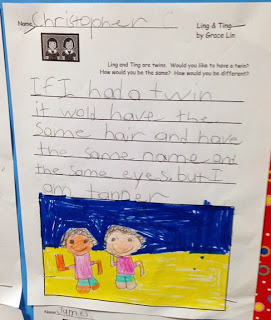 Name Christopher
Ling & Ting
by Grace Lin
Ling and Ting are twins. Would you like to have a twin?
How would you be the same? How would you be different?
If I had a twin
it wold have the
same hair and have
the same name and
the same eyes but I
am tanner
Name James